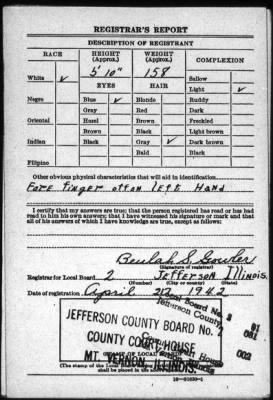 REGISTRAR'S REPORT
DESCRIPTION OF REGISTRANT
RACE HEIGHT (Approx.) WEIGHT (Approx.) COMPLEXION
5' 10" 158 Sallow
White ✓ EYES HAIR Light ✓
Negro Blue ✓ Blonde Ruddy
Gray Red Dark
Oriental Hazel Brown Freckled
Brown Black Light brown
Indian Black Gray ✓ Dark brown
Bald Black
Filipino
Other obvious physical characteristics that will aid in identification
Fore finger off on left Hand
I certify that my answers are true; that the person registered has read or has had
read to him his own answers; that I have witnessed his signature or mark and that
all of his answers of which I have knowledge are true, except as follows:
Beulah S. Gowler
(Signature of registrar)
Registrar for Local Board 2 Jefferson Illinois.
(Number) (City or county) (State)
Date of registration April 27 1942
Local Board No. 2
Jefferson County
JEFFERSON COUNTY BOARD No. 2
COUNTY COURT HOUSE
MT. VERNON, ILLINOIS.
81
081
002
(The stamp of the Local Board
shall be placed in the above space.)